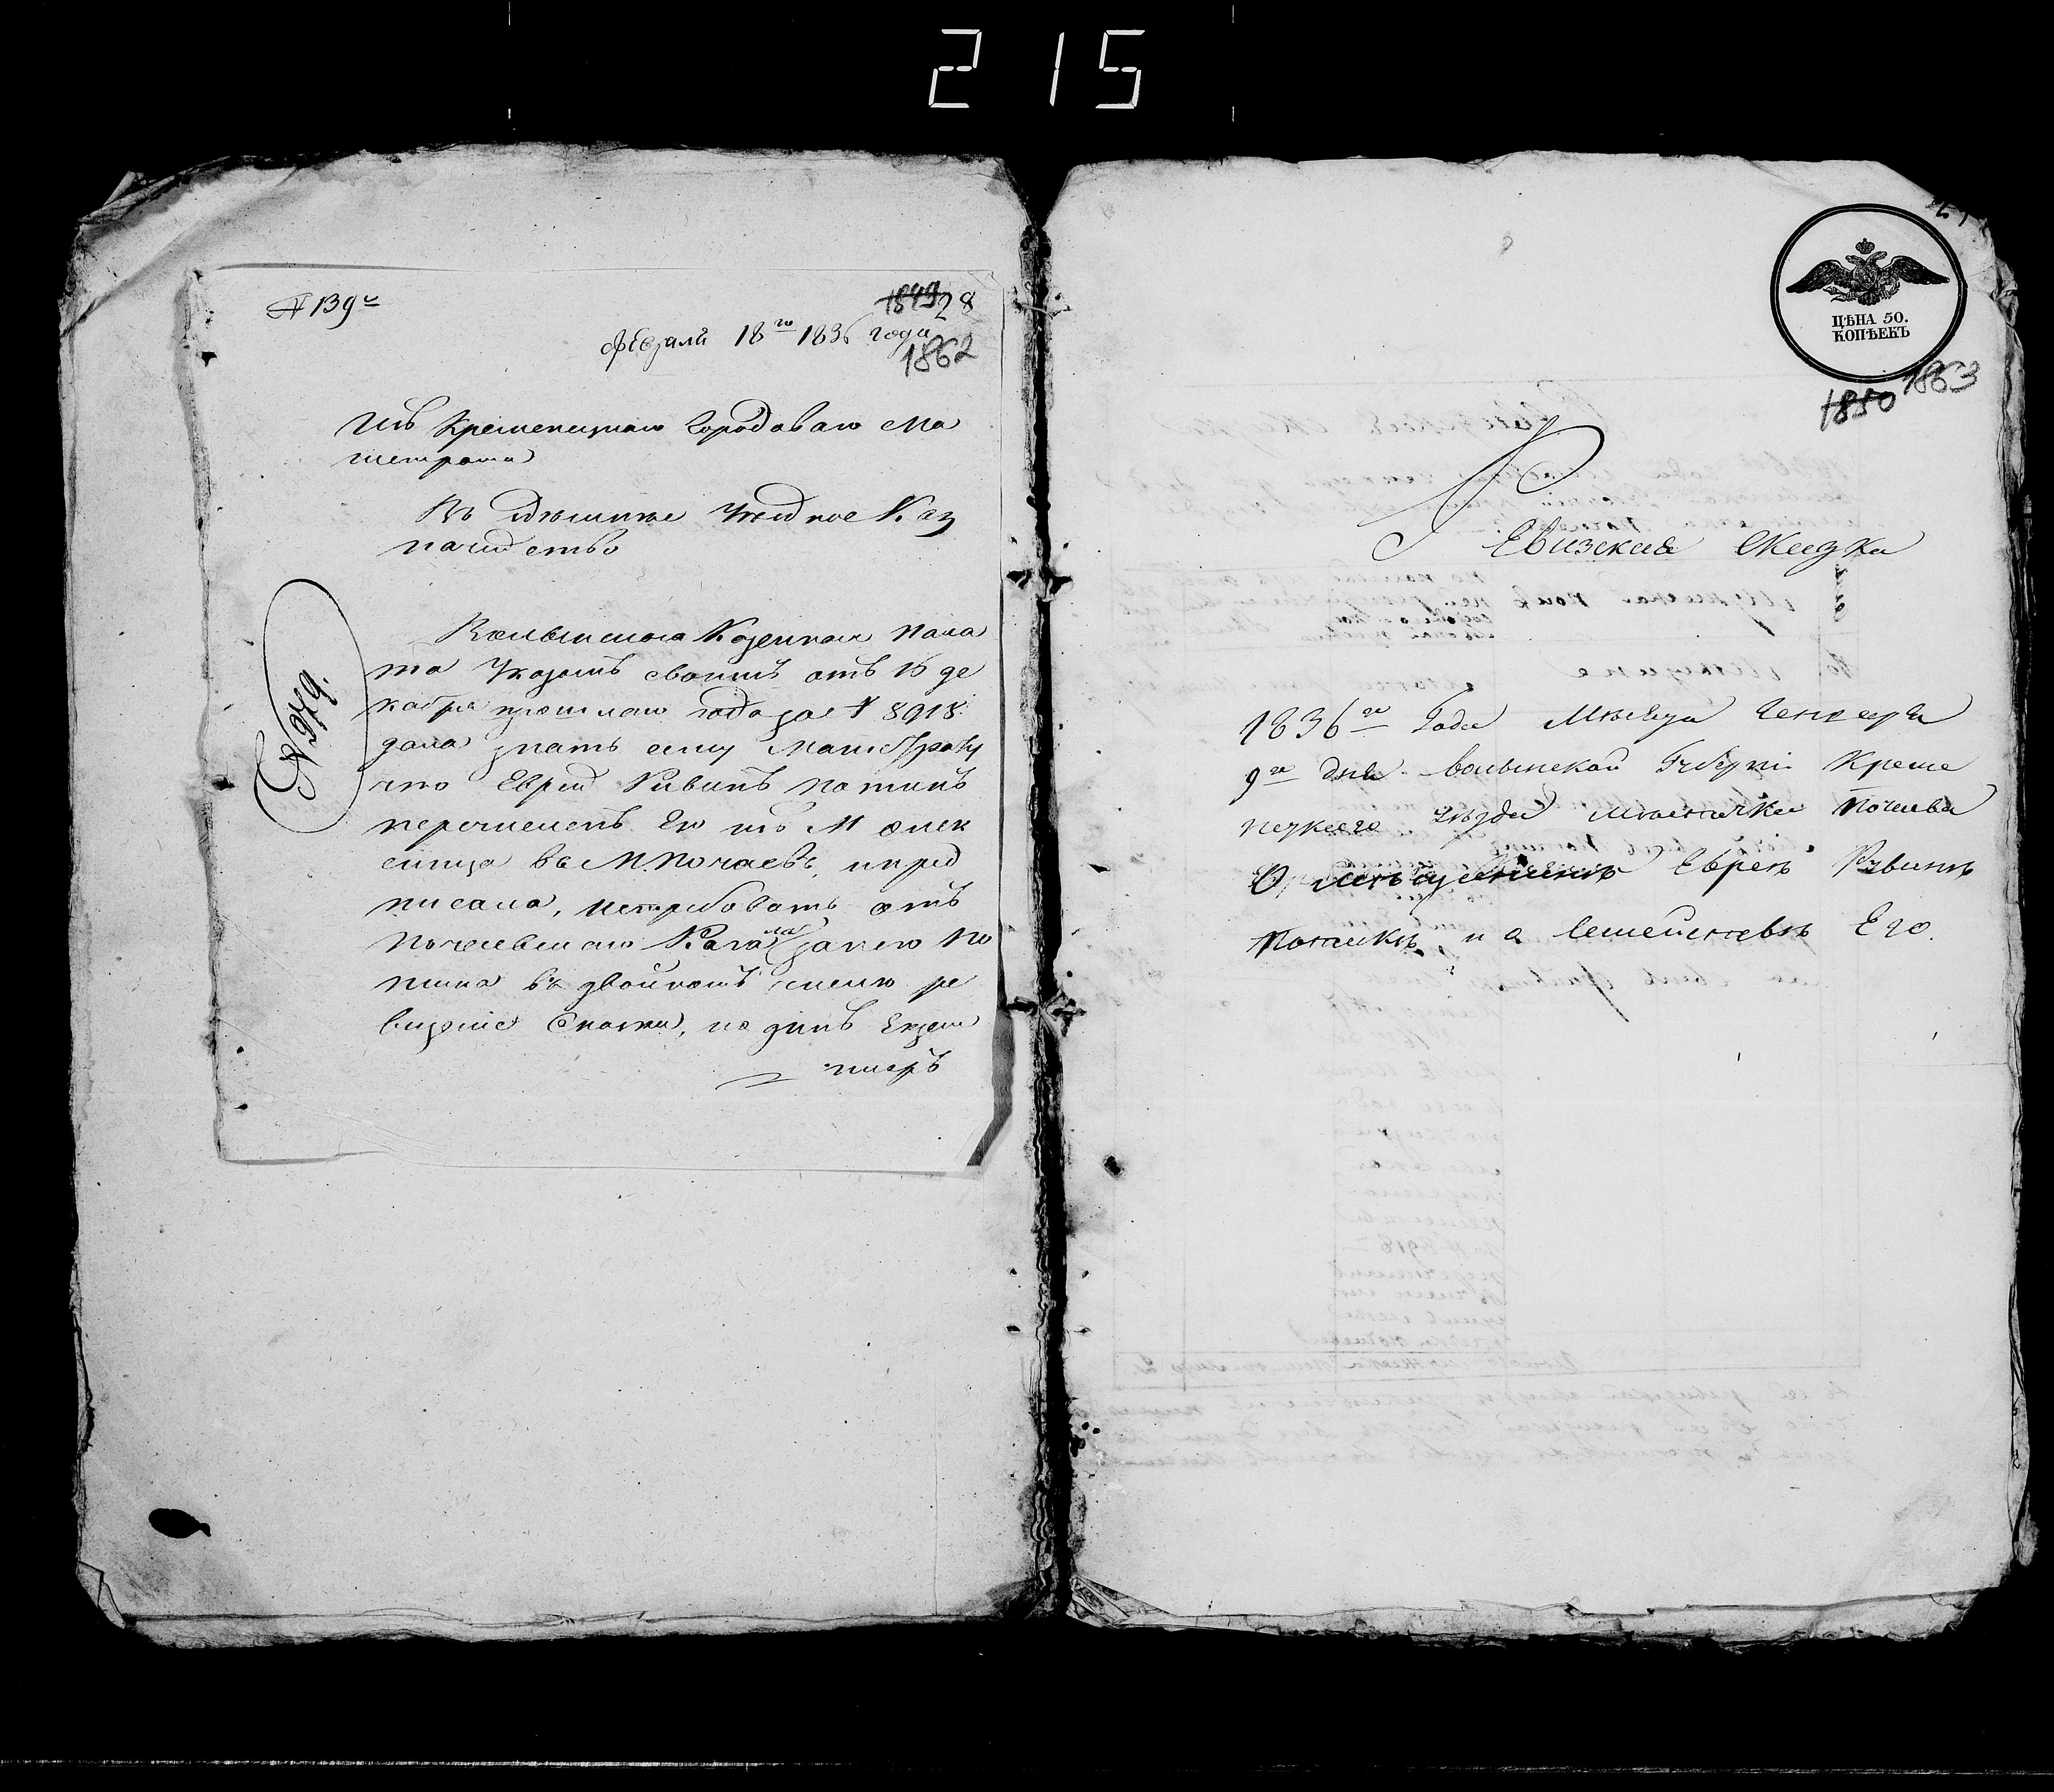 215
№ 139
1849 28
Февраля 18го 1836 года
1862
Изъ Кременецкаго Городоваго Ма
гистрата
Въ здешнее Уездное Каз
начейство
№ 376.
Волынская Казенная пала
та Указомъ своимъ отъ 16 де
кабря прошлаго года за № 8918
дала знать сему Магистрату
что Еврей Рувинъ
перечисленъ Ею изъ М Олек
синца въ М. Почаевъ, и пред
писала, истребовать отъ
Почаевскаго Кагала за него По
тика въ двойномъ числе ре
визские Скаски, и одинъ Екзем
пляръ
ЦѢНА 50.
КОПѢЕКЪ
1863
1850
Ревизская Сказка
1836го Года Месяца Генваря
9го дня Волынской Губернии Креме
нецкаго уезда местечка Почаева
О Еврее Рувине
и о Семействе Его.